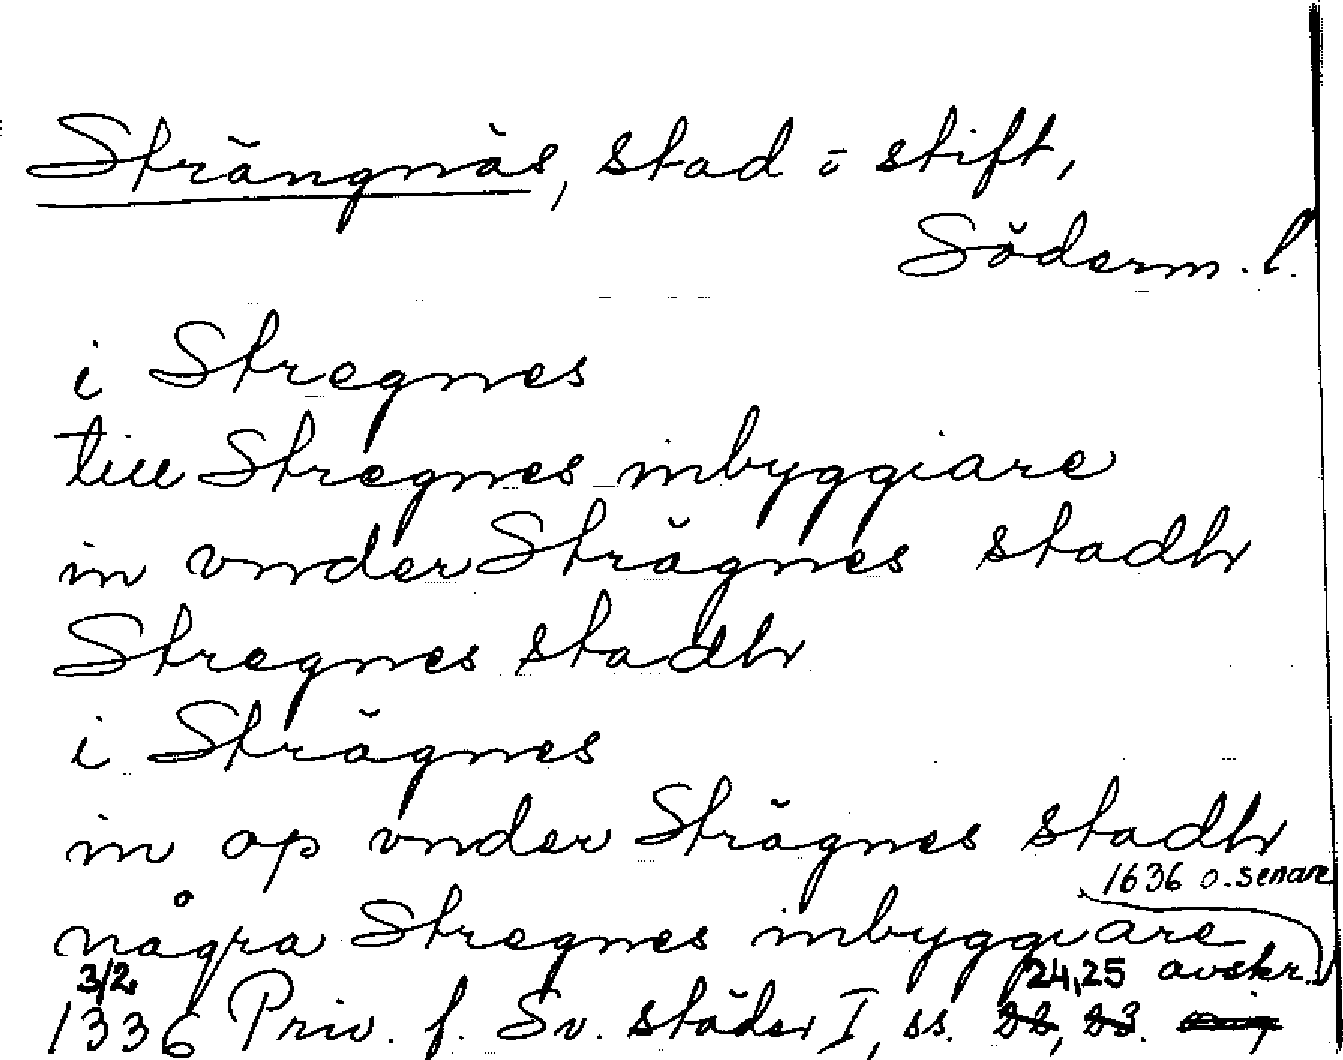 Strängnäs, stad o stift,
Söderm. l.
i Stregnes
till Stregnes inbyggiare
in vnder Strägnes stadh
Stregnes stadh
i Strägnes
in op vnder Strägnes stadh
1636 o. senare
några Stregnes inbyggiare
3/2 24,25 avskr.
1336 Priv. f. Sv. städer I, ss.